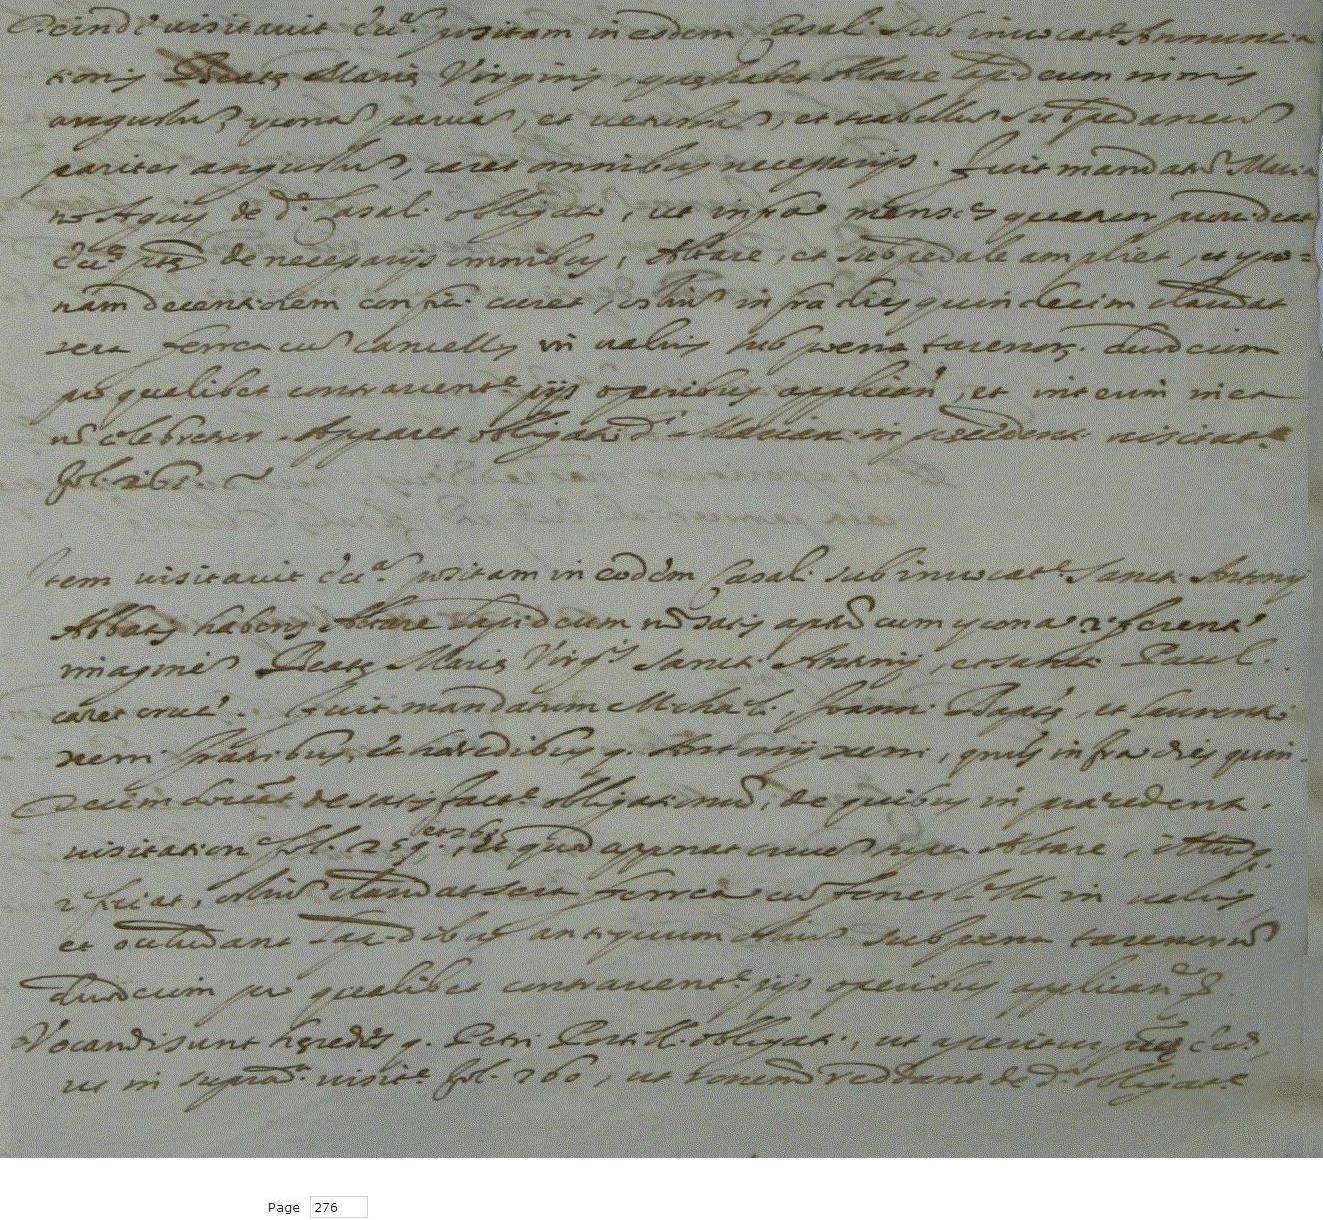 Deinde visitavit Ecc.ᵃ positam in eodem Casal. sub invocat.ᵉ Annuncia
tionis Beatę Marię Virginis, quę habet Altare lapideum nimis
angustũ, yconã parvã, et vetustã, et scabellũ subpedaneũ
pariter angustũ, caret omnibus necessarijs. Fuit mandatũ Maria
no Aquis de d.º Casal. obligat., ut infra menses quatuor provideat
de necessarijs omnibus, Altare, et subpedale ampliet, et yco=
nam decentiorem curet, ostiũ infra dies quindecim claudat
sera ferrea cũ cancellis in valvis sub poena tarenor. duodecim
pro qualibet contravent.ᵉ pijs operibus applican., et interim in ea
nõ celebretur. Apparet obligat. d. Marian. in precedent. visitat.ᵉ
fol. 261.
Item visitavit Ecc.ᵃ positam in eodem Casal. sub invocat.ᵉ Sancti Antonij
Abbatis habens Altare lapideum nõ satis aptũ cum ycona referent.
imaginẽ Beatę Marię Virg.ˢ Sancti Antonij, et Sancti Paul.
caret cruc. Fuit mandatum Michael., Joanni Bapt.ę, et Laurenti
xerri fratribus, et haeredibus q. Antonij xerri, quod infra dies quin
decim doceãt de satisfact.ᵉ obligationũ, de quibus in praecedent.
visitation.ᵉ fol. 259. et 261, et quod apponat cruce super Altare, illudq.
reficiat, ostiũ claudat sera ferrea cũ fenestrell. in valvis
et occludant lapidibus antiquum ostiũ sub poena tarenorũ
duodecim pro qualibet contravent.ᵉ pijs operibus applican.
Vocandi sunt hęredes q. Petri Portelli obligat., ut
ut in supra.ᵈ visit.ᵉ fol. 260, ut reddant de d.ᵃ obligat.ᵉ
Page 276